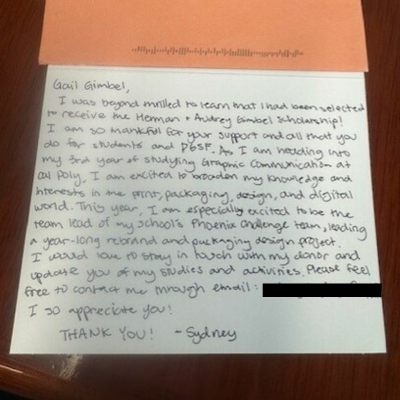 Gail Gimbel,
I was beyond thrilled to learn that I had been selected
to receive the Herman + Audrey Gimbel Scholarship!
I am so thankful for your support and all that you
do for students and PGSF. As I am heading into
my 3rd year of studying Graphic Communication at
Cal Poly, I am excited to broaden my knowledge and
interests in the print, packaging, design, and digital
world. This year, I am especially excited to be the
team lead of my school's Phoenix Challenge team, leading
a year-long rebrand and packaging design project.
I would love to stay in touch with my donor and
update you of my studies and activities. Please feel
free to contact me through email:
I so appreciate you!
THANK YOU! -Sydney